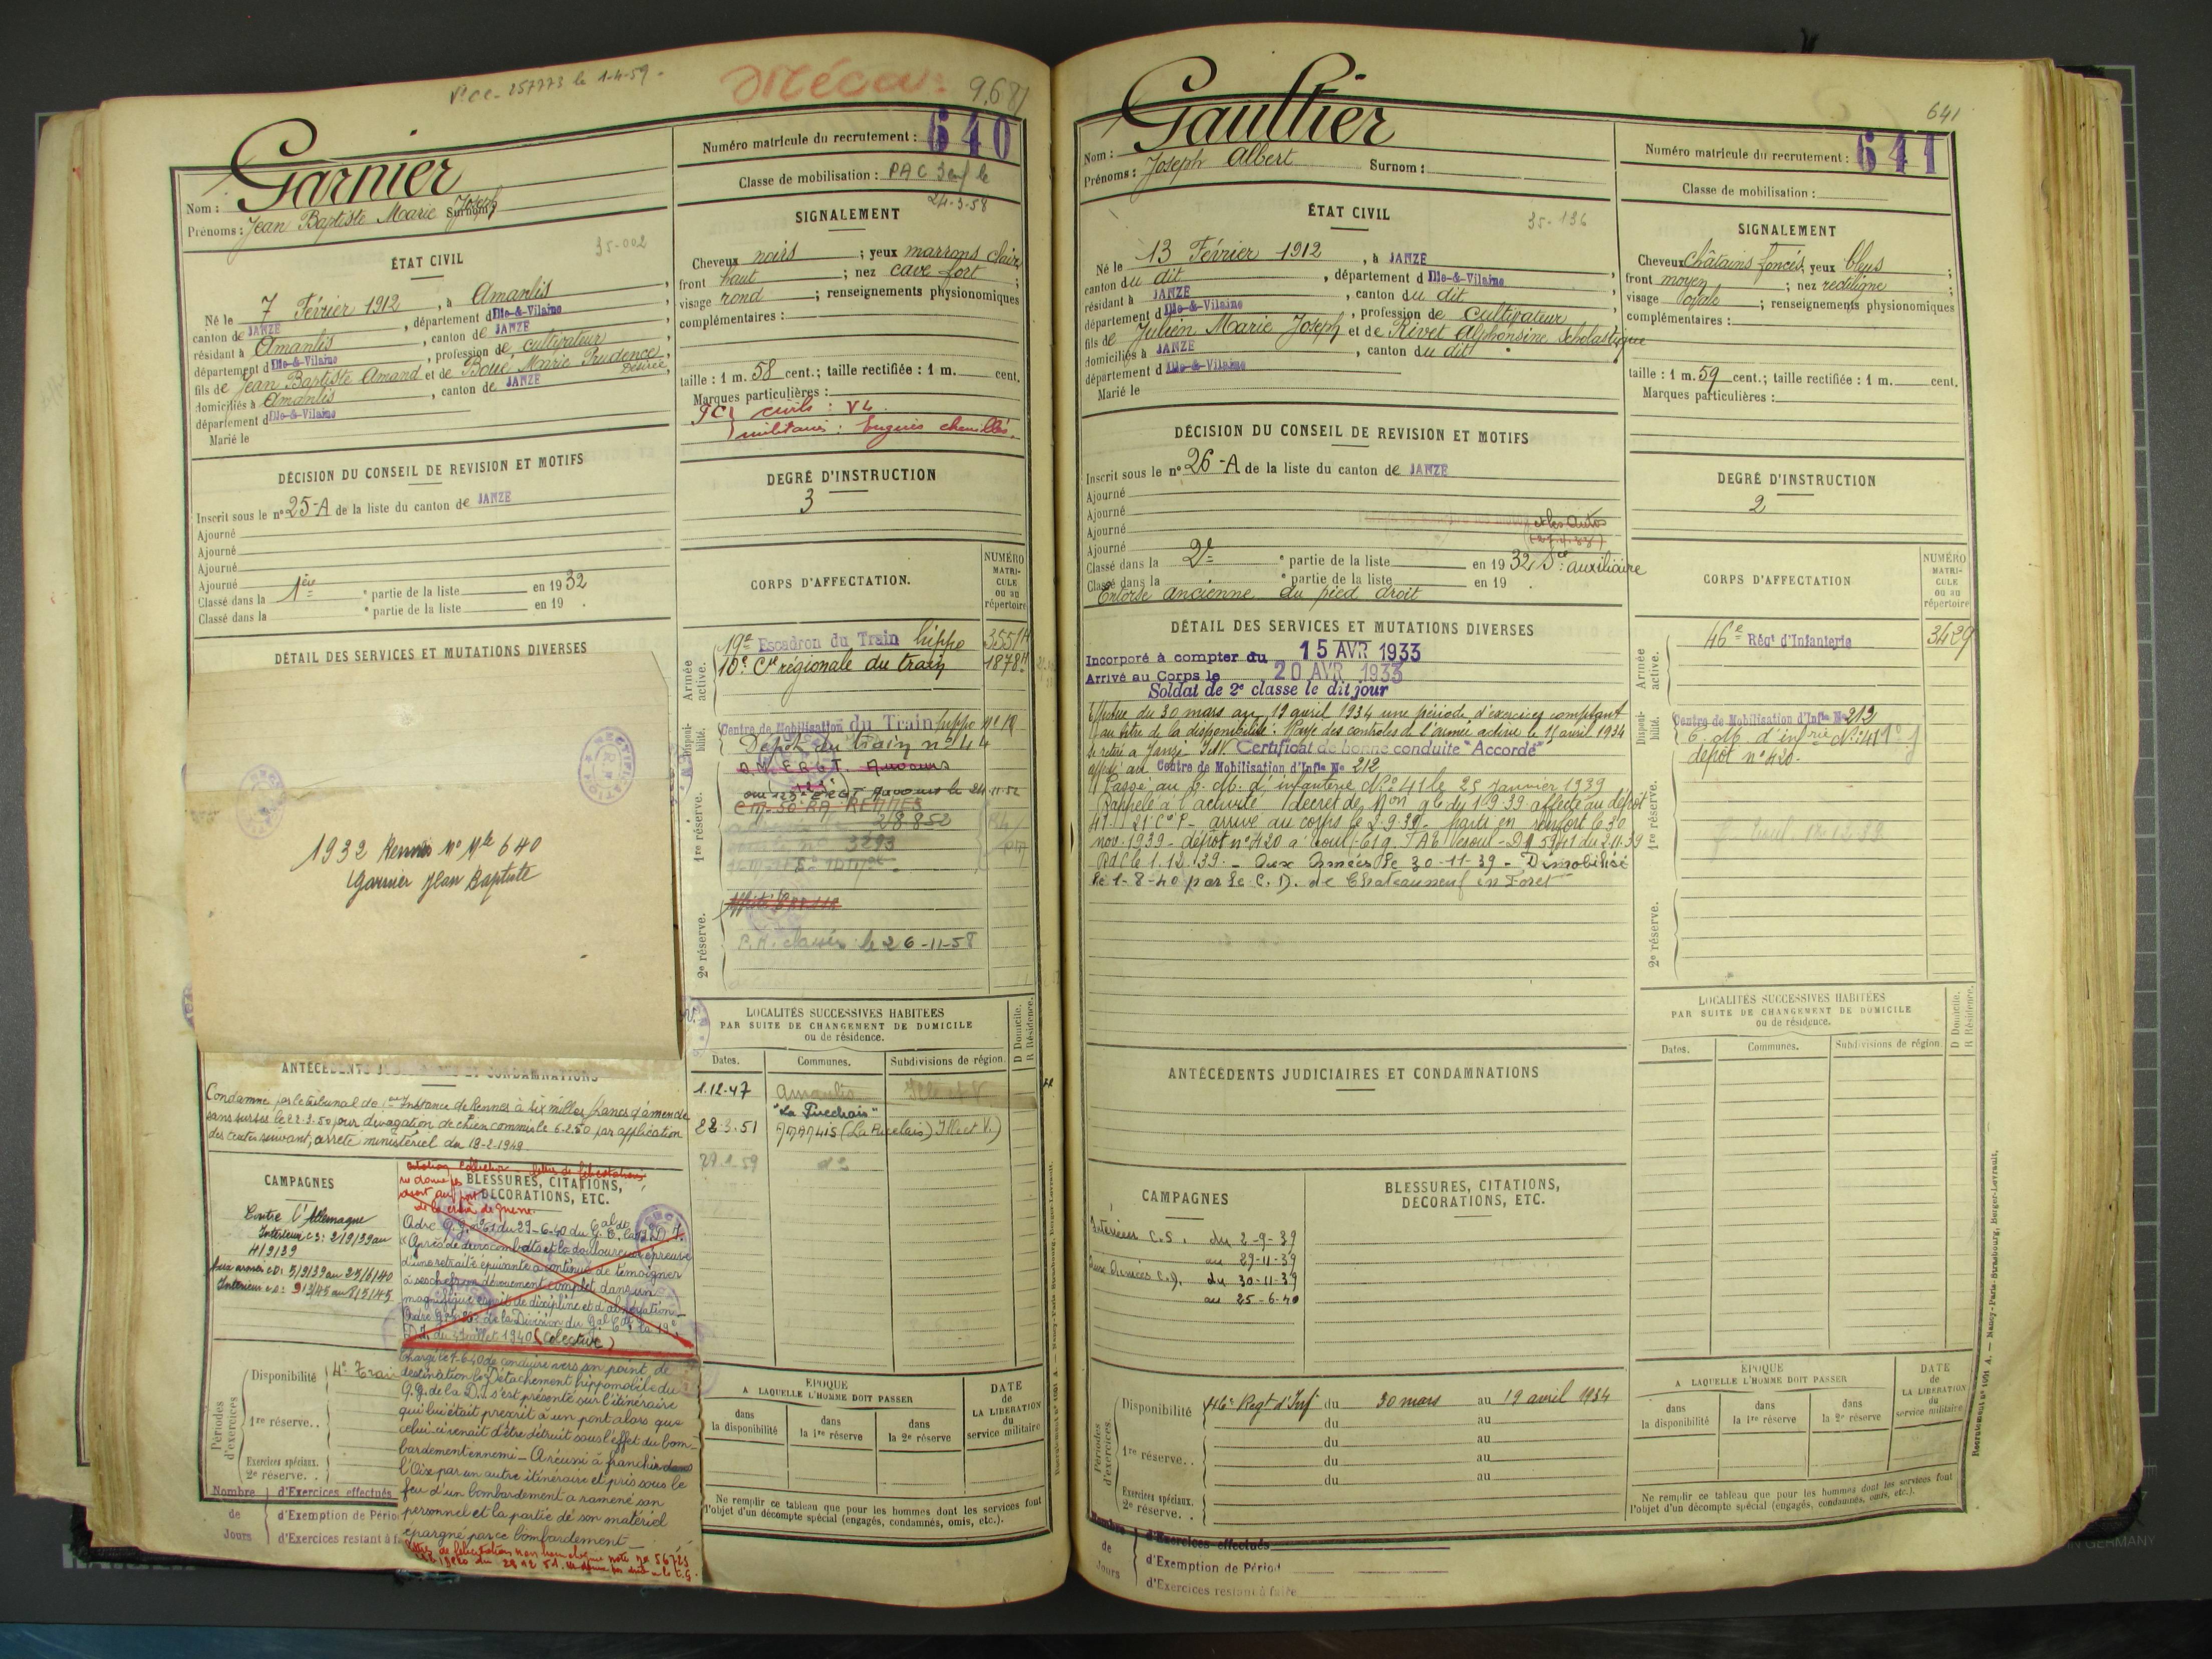 Vº CC- 257773 le 1-4-59 -
9.681
Garnier
Nom :
Prénoms : Jean Baptiste Marie Joseph Surnom :
Numéro matricule du recrutement : 640
Classe de mobilisation : PAC 3enf le
24-3-58
35-002
ÉTAT CIVIL
Né le 7 Février 1912, à Amanlis,
canton de JANZE, département d Ille-&-Vilaine
résidant à Amanlis, canton de JANZE
département d Ille-&-Vilaine, profession de cultivateur
fils de Jean Baptiste Amand et de Boué Marie Prudence,
Désirée
domiciliés à Amanlis, canton de JANZE
département d Ille-&-Vilaine
Marié le
SIGNALEMENT
Cheveux noirs ; yeux marrons clairs
front haut ; nez cave fort ;
visage rond ; renseignements physionomiques
complémentaires :
taille : 1 m. 58 cent.; taille rectifiée : 1 m. cent.
Marques particulières :
civils : VL
militaires : Engins chenillés.
DÉCISION DU CONSEIL DE REVISION ET MOTIFS
Inscrit sous le nº 25-A de la liste du canton de JANZE
Ajourné
Ajourné
Ajourné
Ajourné
Classé dans la 1ère partie de la liste en 1932
Classé dans la e partie de la liste en 19 .
DEGRÉ D'INSTRUCTION
3
DÉTAIL DES SERVICES ET MUTATIONS DIVERSES
1932 Rennes Nº Mle 640
Garnier Jean Baptiste
CORPS D'AFFECTATION.
NUMÉRO
MATRI-
CULE
ou au
répertoire
Armée active.
19e Escadron du Train hippo 3551H
10e Cie régionale du train 1878H
Disponi-bilité.
Centre de Mobilisation du Train hippo nº 10
Dépôt du train nº 44
1re réserve.
CM-50-RA RENNES
28852
3293
2e réserve.
P.A. classé le 26-11-58
LOCALITÉS SUCCESSIVES HABITÉES
PAR SUITE DE CHANGEMENT DE DOMICILE
ou de résidence.
D Domicile.
R Résidence.
Dates. Communes. Subdivisions de région.
1.12.47 Amanlis Ille et V
22.3.51 AMANLIS Ille et V.)
29.1.59 dº
ANTÉCÉDENTS JUDICIAIRES ET CONDAMNATIONS
Condamné par le tribunal de 1ère Instance de Rennes à six milles francs d'amende
sans sursis le 22.3.50 pour divagation de chien commis le 6.2.50 par application
des textes suivant; arrêté ministériel du 18-2-1949.
CAMPAGNES
Contre l'Allemagne
Intérieur CS: 2/9/39 au
4/9/39
Aux armées CD: 5/9/39 au 25/6/40
BLESSURES, CITATIONS,
DÉCORATIONS, ETC.
de la croix de guerre.
"Après de durs combats et la douloureuse épreuve
d'une retraite épuisante a continué de témoigner
à ses chefs son dévouement complet dans un
magnifique esprit de discipline et d'abnégation -
juillet 1940 (Colective)
Chargé le 9-6-40 de conduire vers son point de
destination le Détachement hippomobile du
Q.G. de la D.I. s'est présenté sur l'itinéraire
qui lui était prescrit à un pont alors que
celui-ci venait d'être détruit sous l'effet du bom-
bardement ennemi - A réussi à franchir
l'Oise par un autre itinéraire et pris sous le
feu d'un bombardement a ramené son
personnel et la partie de son matériel
épargné par ce bombardement -
Périodes d'exercices
Disponibilité 4e Train
1re réserve..
Exercices spéciaux.
2e réserve..
Nombre de Jours
d'Exercices effectués
d'Exemption de Pério
d'Exercices restant à f
EPOQUE
A LAQUELLE L'HOMME DOIT PASSER
dans la disponibilité
dans la 1re réserve
dans la 2e réserve
DATE
de
LA LIBERATION
du
service militaire
Ne remplir ce tableau que pour les hommes dont les services font
l'objet d'un décompte spécial (engagés, condamnés, omis, etc.).
641
Gaultier
Nom :
Prénoms : Joseph Albert Surnom :
Numéro matricule du recrutement : 641
Classe de mobilisation :
35-136
ÉTAT CIVIL
Né le 13 Février 1912, à JANZE
canton du dit, département d Ille-&-Vilaine,
résidant à JANZE, canton du dit
département d Ille-&-Vilaine, profession de cultivateur
fils de Julien Marie Joseph et de Rivet Alphonsine Scholastique
domiciliés à JANZE, canton du dit
département d Ille-&-Vilaine
Marié le
SIGNALEMENT
Cheveux châtains foncés, yeux bleus ;
front moyen ; nez rectiligne ;
visage ovale ; renseignements physionomiques
complémentaires :
taille : 1 m. 59 cent.; taille rectifiée : 1 m. cent.
Marques particulières :
DÉCISION DU CONSEIL DE REVISION ET MOTIFS
Inscrit sous le nº 26-A de la liste du canton de JANZE
Ajourné
Ajourné
Ajourné
Ajourné
Classé dans la 2e partie de la liste en 1932 Sce auxiliaire
Classé dans la e partie de la liste en 19 .
Entorse ancienne du pied droit
DEGRÉ D'INSTRUCTION
2
DÉTAIL DES SERVICES ET MUTATIONS DIVERSES
Incorporé à compter du 15 AVR 1933
Arrivé au Corps le 20 AVR 1933
Soldat de 2e classe le dit jour
Effectue du 30 mars au 19 avril 1934 une période d'exercices comptant
au titre de la disponibilité. Rayé des contrôles de l'armée active le 15 avril 1934
se retire à Janzé I&V. Certificat de bonne conduite "Accordé"
affecté au Centre de Mobilisation d'Infie Nº 212
Passé au C. M. d'infanterie Nº 41 le 25 Janvier 1939
Rappelé à l'activité décret de Mon gle du 1.9.39. affecté au dépôt
41 21e Cº P - arrivé au corps le 2.9.39 - parti en renfort le 30
nov. 1939 - dépôt nº 420 à
RDC le 1.12.39. - Aux Armées le 30-11-39 - Démobilisé
le 1-8-40 par le C. D. de Chateauneuf en Foret
CORPS D'AFFECTATION
NUMÉRO
MATRI-
CULE
ou au
répertoire
Armée active.
46e Régt d'Infanterie 3429
Disponi-bilité.
Centre de Mobilisation d'Infie Nº 212
C. M. d'infrie Nº 41
1re réserve.
dépôt nº 420.
2e réserve.
LOCALITÉS SUCCESSIVES HABITÉES
PAR SUITE DE CHANGEMENT DE DOMICILE
ou de résidence.
D Domicile.
R Résidence.
Dates. Communes. Subdivisions de région.
ANTÉCÉDENTS JUDICIAIRES ET CONDAMNATIONS
CAMPAGNES
Intérieur C.S. du 2-9-39
au 29-11-39
Aux Armées C.D. du 30-11-39
au 25-6-40
BLESSURES, CITATIONS,
DÉCORATIONS, ETC.
Périodes d'exercices
Disponibilité 46e Regt d'Inf du 30 mars au 19 avril 1934
du au
1re réserve.. du au
du au
du au
Exercices spéciaux.
2e réserve..
Nombre de Jours
d'Exercices effectués
d'Exemption de Périod
d'Exercices restant à faire
EPOQUE
A LAQUELLE L'HOMME DOIT PASSER
dans la disponibilité
dans la 1re réserve
dans la 2e réserve
DATE
de
LA LIBERATION
du
service militaire
Ne remplir ce tableau que pour les hommes dont les services font
l'objet d'un décompte spécial (engagés, condamnés, omis, etc.).
Recrutement Nº 1091 A. — Nancy-Paris-Strasbourg, Berger-Levrault.
IN GERMANY